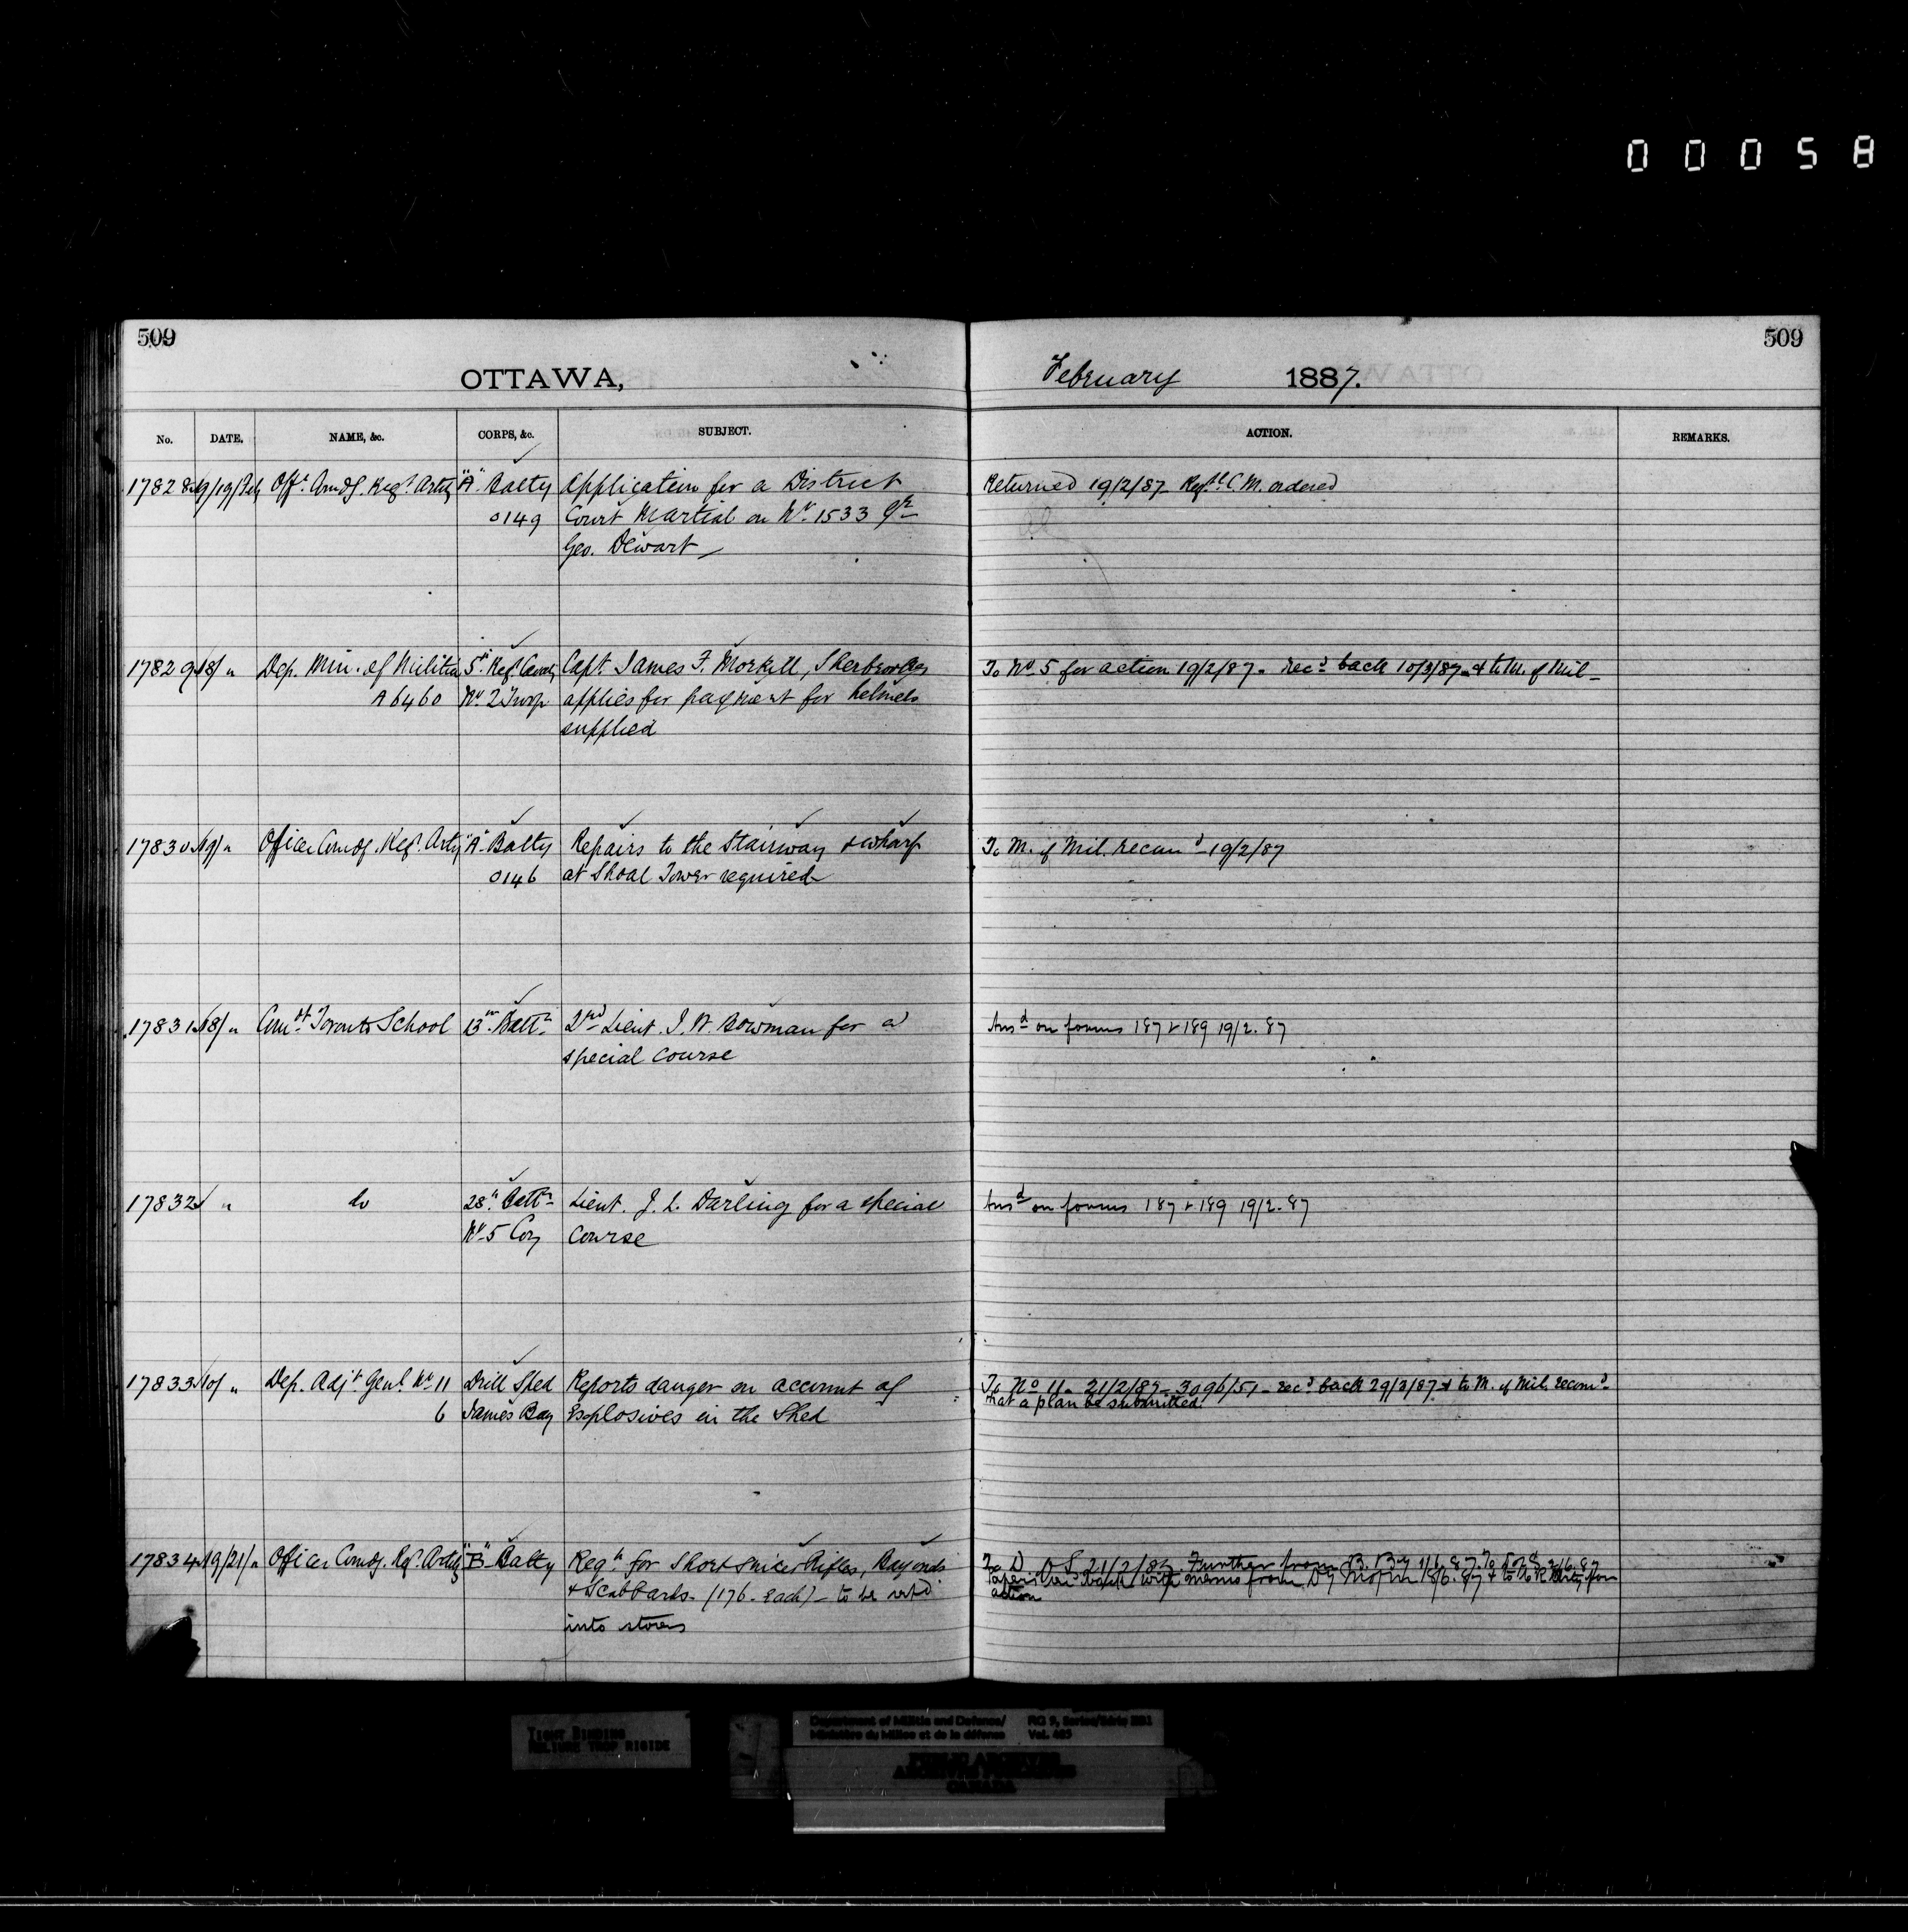 00058
509
509
OTTAWA,
February 1887.
No. DATE. NAME, &c. CORPS, &c. SUBJECT. ACTION. REMARKS.
17828 19/19/Feb Offr. Comdg. Regt. Arty "A" Batty Application for a District Returned 19/2/87 Regtl. C.M. ordered
0149 Court Martial on No. 1533 Gr
Geo. Dewart
17829 18/ " Dep. Min. of Militia 5th Regt. Cavaly Capt. James F. Morkill, Sherbrooke, To No. 5 for action 19/2/87 - Recd back 10/3/87 & to M. of Mil -
A6460 No. 2 Troop applies for payment for helmets
supplied
17830 19/ " Officer Comdg. Regt. Arty "A" Batty Repairs to the Stairway & wharf To M. of Mil. recomd - 19/2/87
0146 at Shoal Tower required
17831 18/ " Comdt. Toronto School 13th Battn 2nd Lieut. J. W. Bowman for a Ansd on forms 187 & 189 19/2.87
special course
17832 " do 28th Battn Lieut. J. L. Darling for a special Ansd on forms 187 & 189 19/2.87
No. 5 Coy Course
17833 10/ " Dep. Adjt. Genl. No. 11 Drill Shed Reports danger on account of To No 11 - 21/2/87 - 3096/51 - recd back 29/3/87 & to M. of Mil. recomd -
6 James Bay Explosives in the Shed that a plan be submitted.
17834 19/21/ " Officer Comdg. Regt. Arty "B" Batty Reqn for Short Snider Rifles, Bayonets To D of S 21/2/87 Further from B. By 1/6.87. To D of S 2/6.87
& Scabbards - (176 - Each) - to be retd back with memo from 18/6.87 & to for
into stores action
TIGHT BINDING
RELIURE TROP RIGIDE
Department of Militia and Defence/ RG 9, Series/Série
Ministère du Milice et de la défense Vol.
PUBLIC ARCHIVES
ARCHIVES PUBLIQUES
CANADA